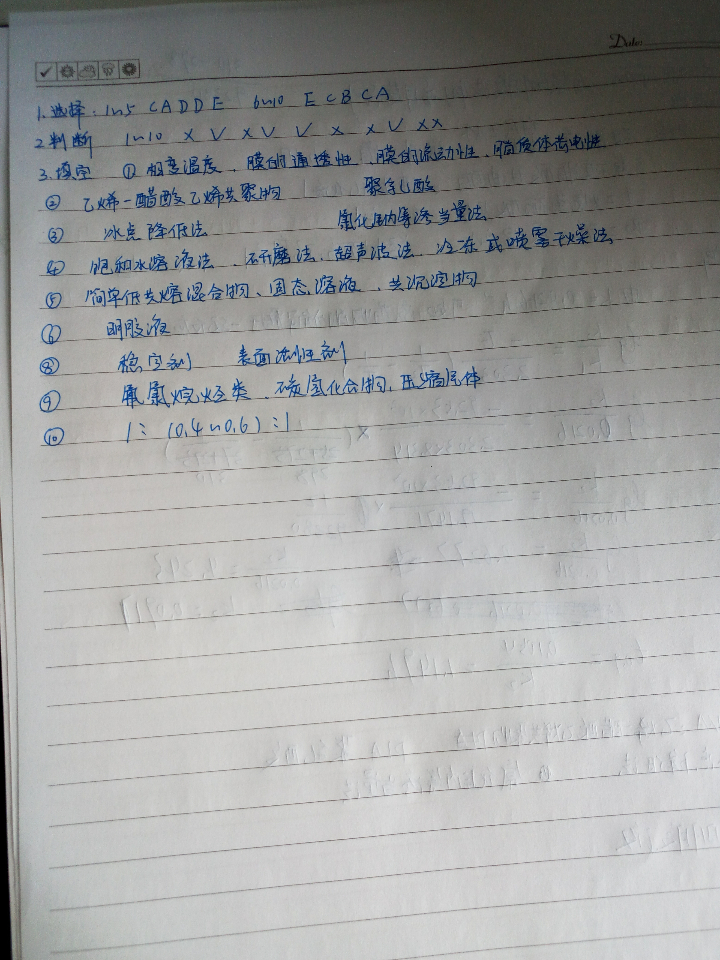 Date:
1.选择: 1~5 CADDE 6~10 ECBCA
2.判断 1~10 × √ × √ √ × × √ × ×
3.填空 ① 相变温度、膜的通透性、膜的流动性、脂质体荷电性
② 乙烯-醋酸乙烯共聚物 聚乳酸
③ 冰点降低法 氯化钠等渗当量法
④ 饱和水溶液法、研磨法、超声波法、冷冻或喷雾干燥法
⑤ 简单低共熔混合物、固态溶液、共沉淀物
⑥ 明胶液
⑧ 稳定剂 表面活性剂
⑨ 氟氯烷烃类、碳氢化合物、压缩气体
⑩ 1:(0.4~0.6):1